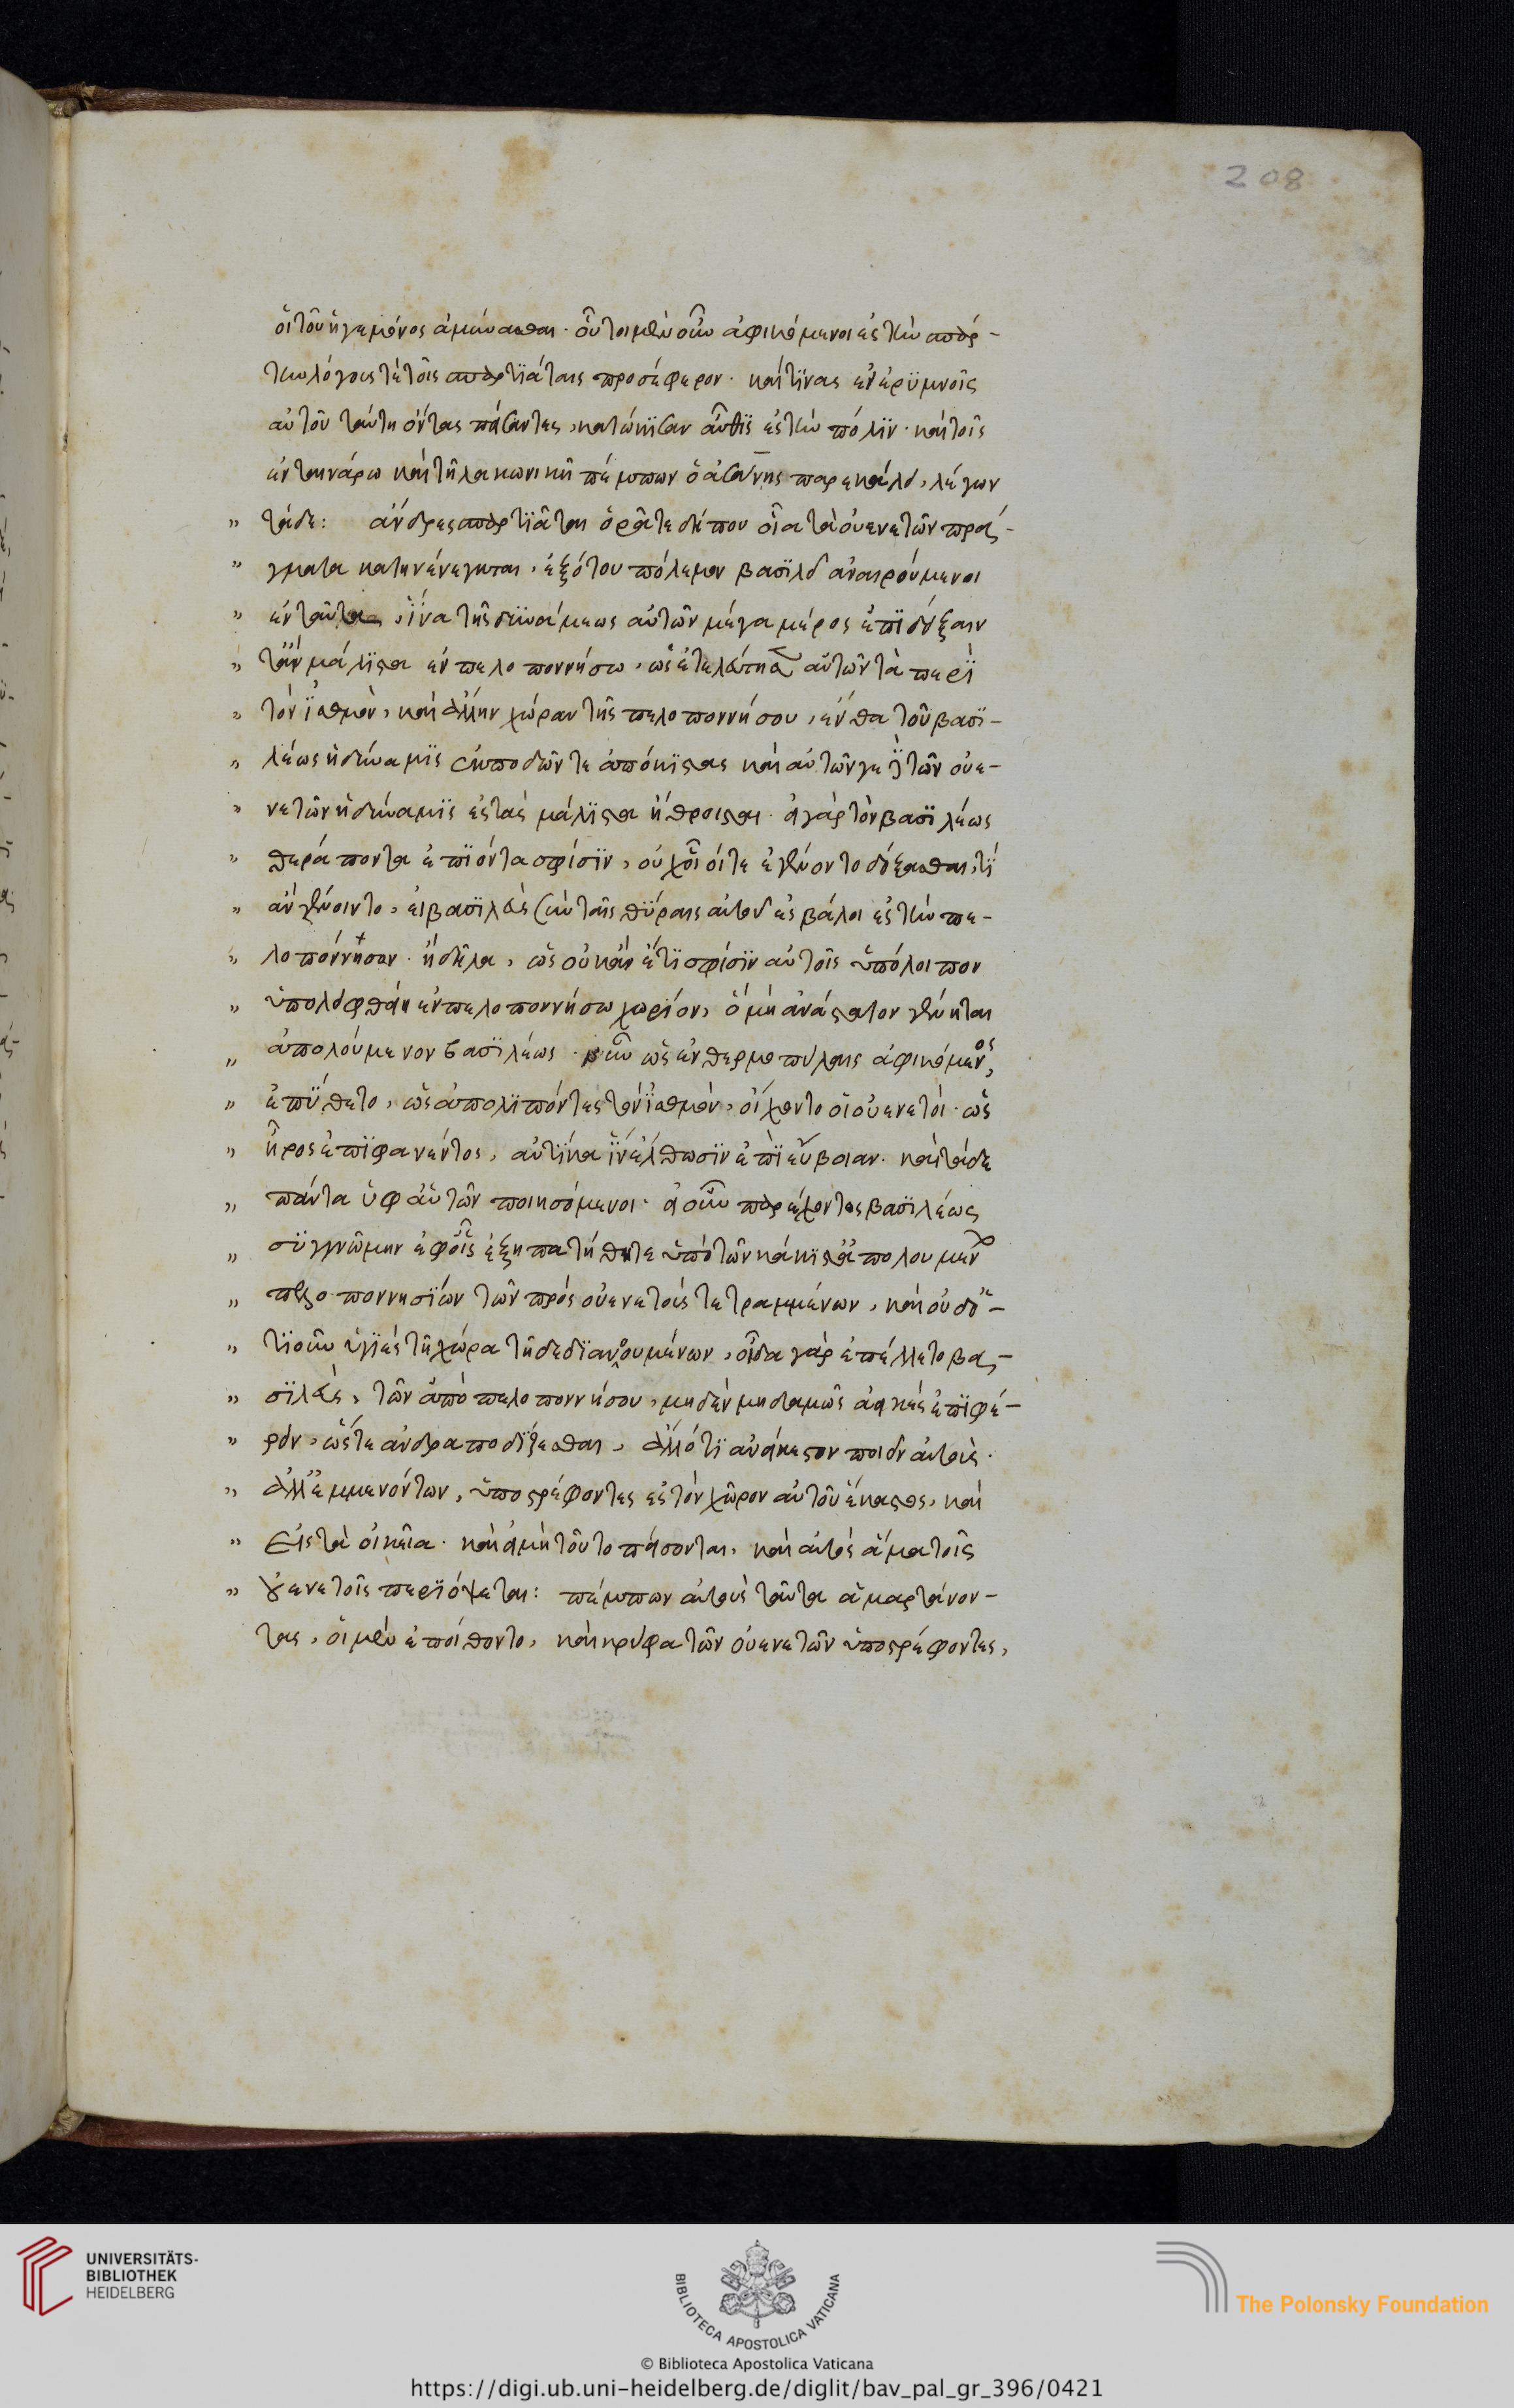 208
οἱ τοῦ ἡγεμόνος ἀμύνασθαι. οὗτοι μὲν οὖν ἀφικόμενοι ἐς τὴν σπάρ-
την λόγους τὲ τοῖς σπαρτιάταις προσέφερον. καί τινας ἐν ἐρυμνοῖς
αὐτοῦ ταύτη ὄντας πείσαντες, κατώκισαν αὖθις ἐς τὴν πόλιν. καὶ τοῖς
ἐν ταινάρω καὶ τῆ λακωνικῆ πέμπων ὁ ἀσάνης παρεκάλει, λέγων
" τάδε: ἄνδρες σπαρτιᾶται ὁρᾶτε δήπου οἷα τὰ οὐενετῶν πρά-
" γματα κατενήνεγκται, ἐξότου πόλεμον βασιλεῖ ἀναιρούμενοι
" ἐνταῦθα, ἵνα τῆς δυνάμεως αὐτῶν μέγα μέρος ἐπιδείξαιν
" τ' ἂν μάλιστα ἐν πελοποννήσω, ὡς ἐτελεύτησεν αὐτῶν τὰ περὶ
" τὸν ἰσθμὸν, καὶ ἄλλην χώραν τῆς πελοποννήσου, ἔνθα τοῦ βασι-
" λέως ἡ δύναμις ἐκποδῶν τε ἀπόκιστας καὶ αὐτῶν γε τῶν οὐε-
" νετῶν ἡ δύναμις ἐς τὰς μάλιστα ἤθροισται. εἰ γὰρ τὸν βασιλέως
" θεράποντα ἐπιόντα σφίσιν, οὐχ οἷοί τε ἐγένοντο δέξασθαι, τί
" ἂν γένοιντο, εἰ βασιλεὺς σὺν ταῖς θύραις αὐτοῦ ἐσβάλοι ἐς τὴν πε-
" λοπόννησον. ἢ δῆλα, ὡς οὐκ ἂν ἔτι σφίσιν αὐτοῖς ὑπόλοιπον
" ὑπολειφθείη ἐν πελοποννήσω χωρίον, ὃ μὴ ἀνάστατον γένηται
" ἀπολούμενον βασιλέως. οὖν ὡς ἐν θερμοπύλαις ἀφικόμενος,
" ἐπύθετο, ὡς ἀπολιπόντες τὸν ἰσθμὸν, οἴχοντο οἱ οὐενετοί. ὡς
" ἦρος ἐπιφανέντος, αὐτίκα ἵν' ἔλθωσιν ἐπὶ εὔβοιαν. καὶ τάδε
" πάντα ὑφ' αὑτῶν ποιησόμενοι. εἰ οὖν παρέχοντος βασιλέως
" συγγνώμην ἐφ' οἷς ἐξηπατήθητε ὑπὸ τῶν κάκιστα ἀπολουμένων
" πελοποννησίων τῶν πρὸς οὐενετοὺς τετραμμένων, καὶ οὐδ' ὅ-
" τι οὖν ὑγιὲς τῆ χώρα τῆδε διανοουμένων, οἶδα γὰρ ἐπέλλετο βα-
" σιλεὺς, τῶν ἀπὸ πελοποννήσου, μηδὲν μηδαμῶς ἀεικὲς ἐπιφέ-
" ρειν, ὥστε ἀνδραποδίζεσθαι, ἄλλό τι ἀνήκεστον ποιεῖν αὐτοὺς.
" ἀλλ' ἐμμενόντων, ὑποστρέφοντες ἐς τὸν χῶρον αὐτοῦ ἕκαστος, καὶ
" Εἰς τὰ οἰκεῖα. καὶ εἰ μὴ τοῦτο πείσονται, καὶ αὐτοὺς ἅμα τοῖς
" οὐενετοῖς περιόψεται: πέμπων αὐτοὺς ταῦτα ἁμαρτάνον-
τας, οἱ μὲν ἐπείθοντο, καὶ κρύφα τῶν οὐενετῶν ὑποστρέφοντες,
UNIVERSITÄTS-
BIBLIOTHEK
HEIDELBERG
BIBLIOTECA APOSTOLICA VATICANA
The Polonsky Foundation
© Biblioteca Apostolica Vaticana
https://digi.ub.uni-heidelberg.de/diglit/bav_pal_gr_396/0421